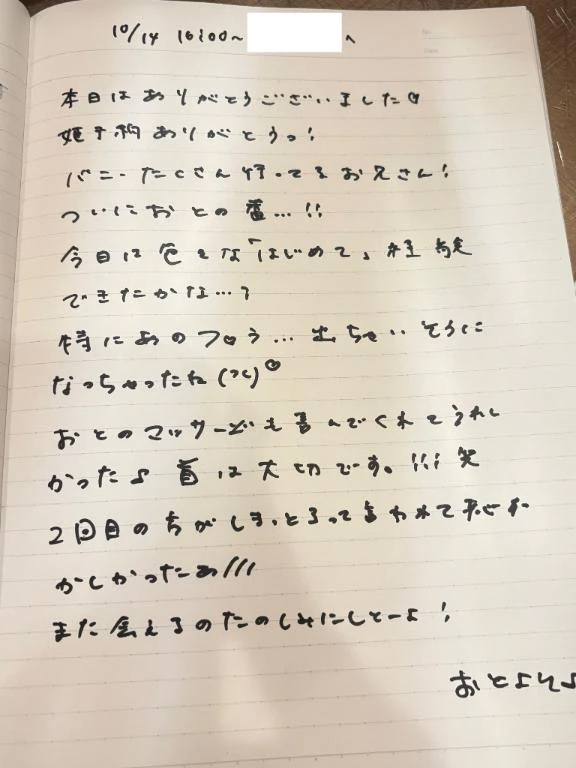 10/14 16:00~ へ
本日はありがとうございました♡
姫予約ありがとうっ!
バニーたくさん行ってるお兄さん!
ついにおとの番…!!
今日は色々な「はじめて」経験
できたかな…?
特にあのフロう… 出ちゃいそうに
なっちゃったね(つく)♡
おとのマッサージも喜んでくれてうれし
かった♪ 首は大切です。!!! 笑
2回目の方がしまっとるって言われて
かしかったぁ///
また会えるのたのしみにしとーよ!
おとより♪